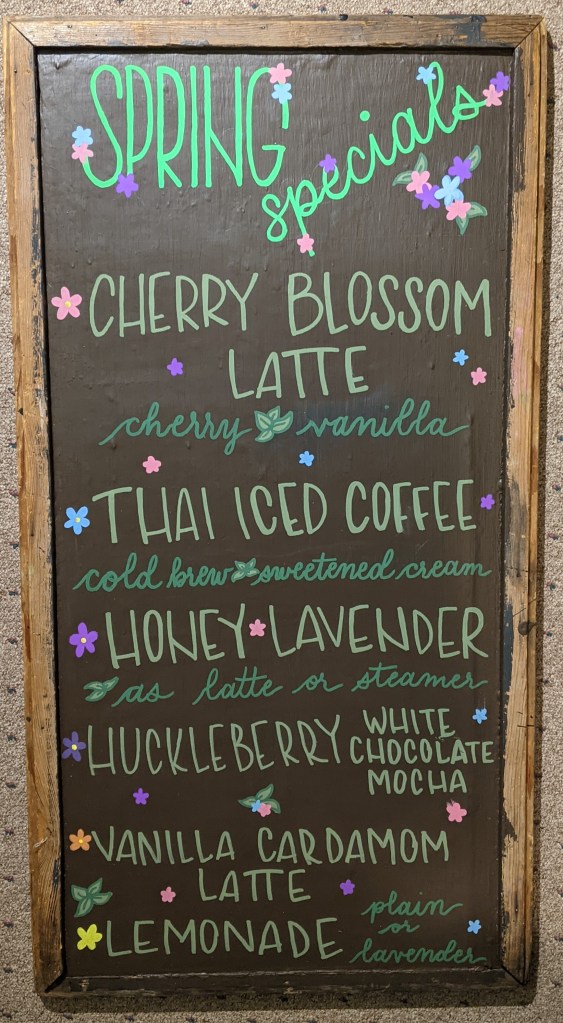 SPRING
specials
CHERRY BLOSSOM
LATTE
cherry vanilla
THAI ICED COFFEE
cold brew sweetened cream
HONEY LAVENDER
as latte or steamer
HUCKLEBERRY WHITE
CHOCOLATE
MOCHA
VANILLA CARDAMOM
LATTE
LEMONADE plain
or
lavender